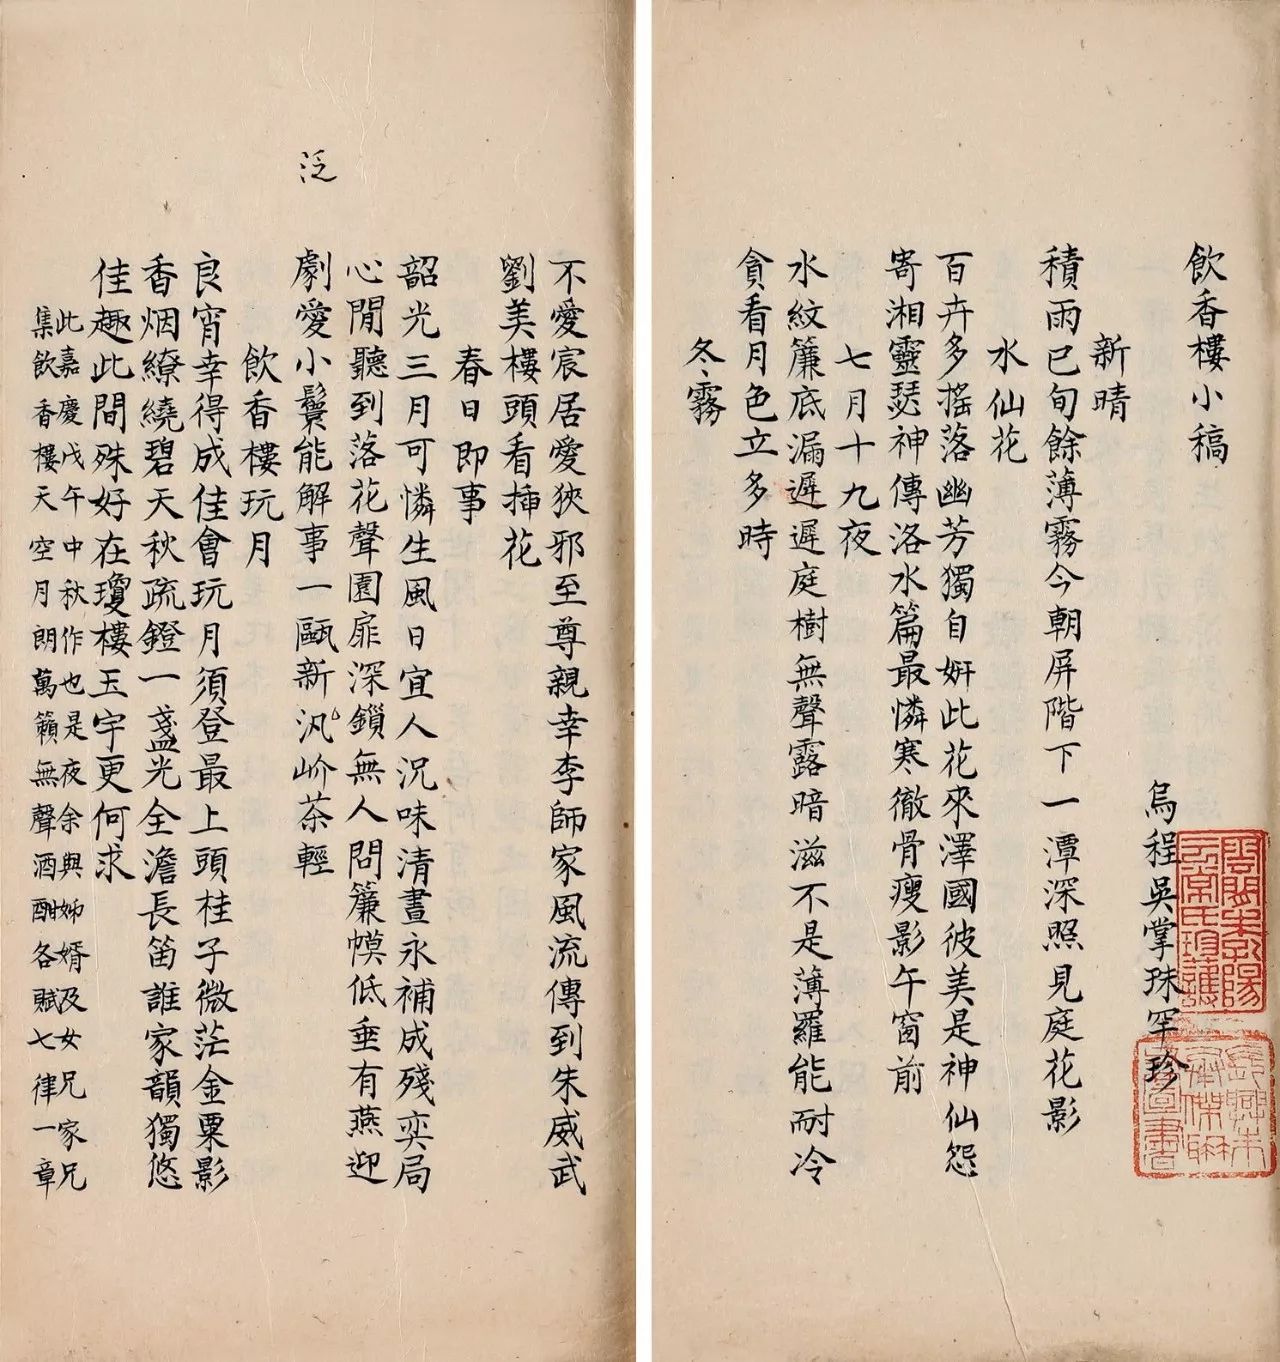 飲香樓小稿
烏程吳掌珠罕珍
新晴
積雨已旬餘薄霧今朝屏階下一潭深照見庭花影
水仙花
百卉多搖落幽芳獨自妍此花來澤國彼美是神仙怨
寄湘靈瑟神傳洛水篇最憐寒徹骨瘦影午窗前
七月十九夜
水紋簾底漏遲遲庭樹無聲露暗滋不是薄羅能耐冷
貪看月色立多時
冬霧
不愛宸居愛狹邪至尊親幸李師家風流傳到朱威武
劉美樓頭看插花
春日即事
韶光三月可憐生風日宜人況味清晝永補成殘奕局
心閒聽到落花聲園扉深鎖無人問簾幙低垂有燕迎
泛
劇愛小鬟能解事一甌新汎岕茶輕
飲香樓玩月
良宵幸得成佳會玩月須登最上頭桂子微茫金粟影
香烟繚繞碧天秋疏鐙一盞光全澹長笛誰家韻獨悠
佳趣此間殊好在瓊樓玉宇更何求
此嘉慶戊午中秋作也是夜余與姊婿及女兄家兄
集飲香樓天空月朗萬籟無聲酒酣各賦七律一章